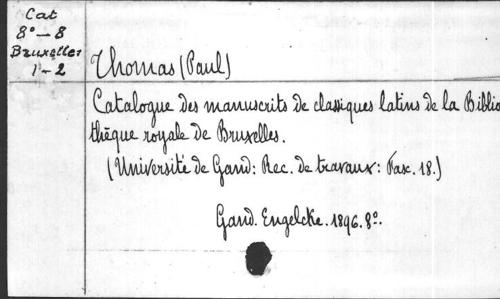 Cat
8° — 8
Bruxelles
1 - 2
Thomas (Paul)
Catalogue des manuscrits de classiques latins de la Biblio
thèque royale de Bruxelles.
(Université de Gand: Rec. de travaux: Fasc. 18.)
Gand. Engelcke. 1896. 8°.